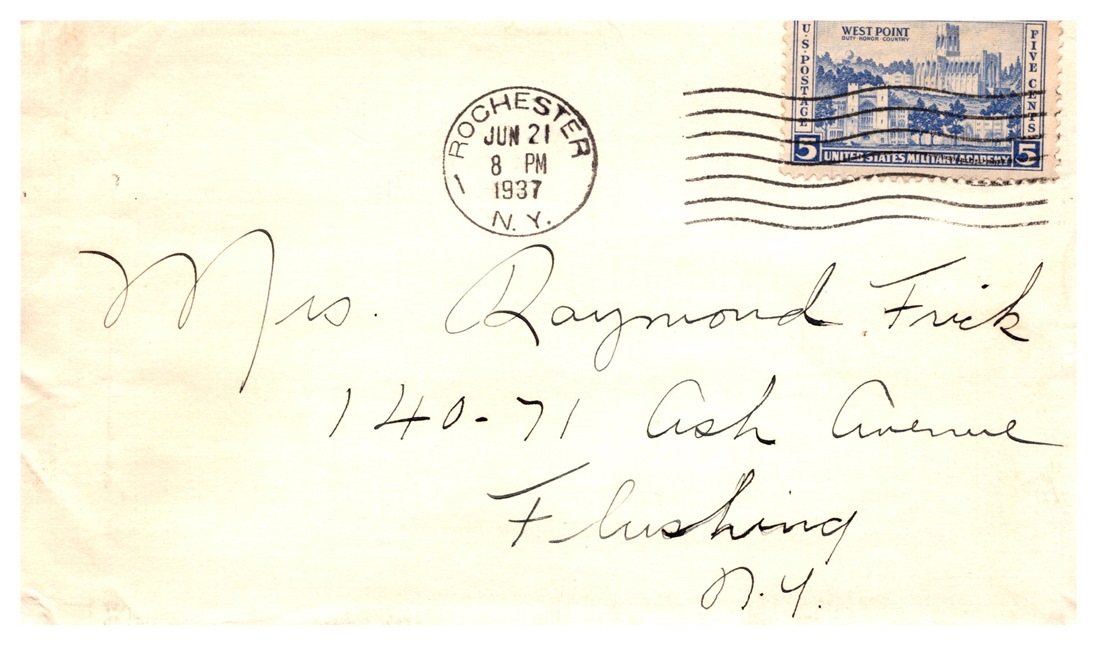 U.S. POSTAGE
WEST POINT
DUTY·HONOR·COUNTRY
FIVE CENTS
5 UNITED STATES MILITARY ACADEMY 5
1 ROCHESTER
JUN 21
8 PM
1937
N.Y.
Mrs. Raymond Frick
140-71 Ash Avenue
Flushing
N.Y.